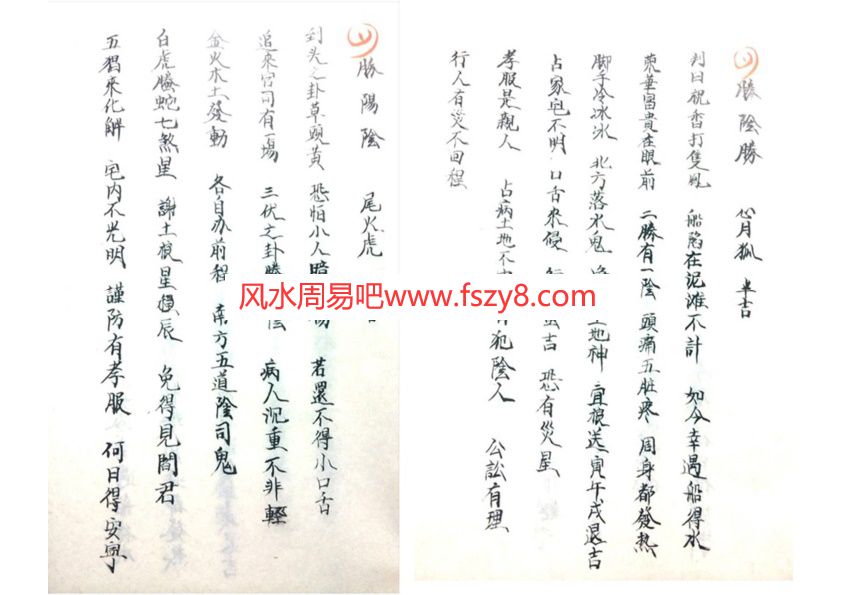 勝陰勝 心月狐 吉
判曰祝香打隻 船陷在泥滩不計 如今幸遇船得水
荣華富貴在眼前 二勝有一陰 頭痛五脏疼 周身都發熱
脚手冷冰冰 北方落水鬼 土地神 宜禳送寅午戌退吉
占家宅不明 口舌來侵 吉 恐有災星
孝服是親人 占病土地不 犯陰人 公訟有理
行人有災不回程
勝陽陰 尾火虎
到头之卦草頭黄 恐怕小人暗 若還不得小口舌
追來官司有一場 三伏之卦勝 陰 病人沉重不非輕
金火木土發動 各自办前程 南方五道陰司鬼
白虎螣蛇七煞星 謝土禳星 辰 免得見閻君
五猖來化解 宅内不光明 謹防有孝服 何日得安寧
风水周易吧www.fszy8.com